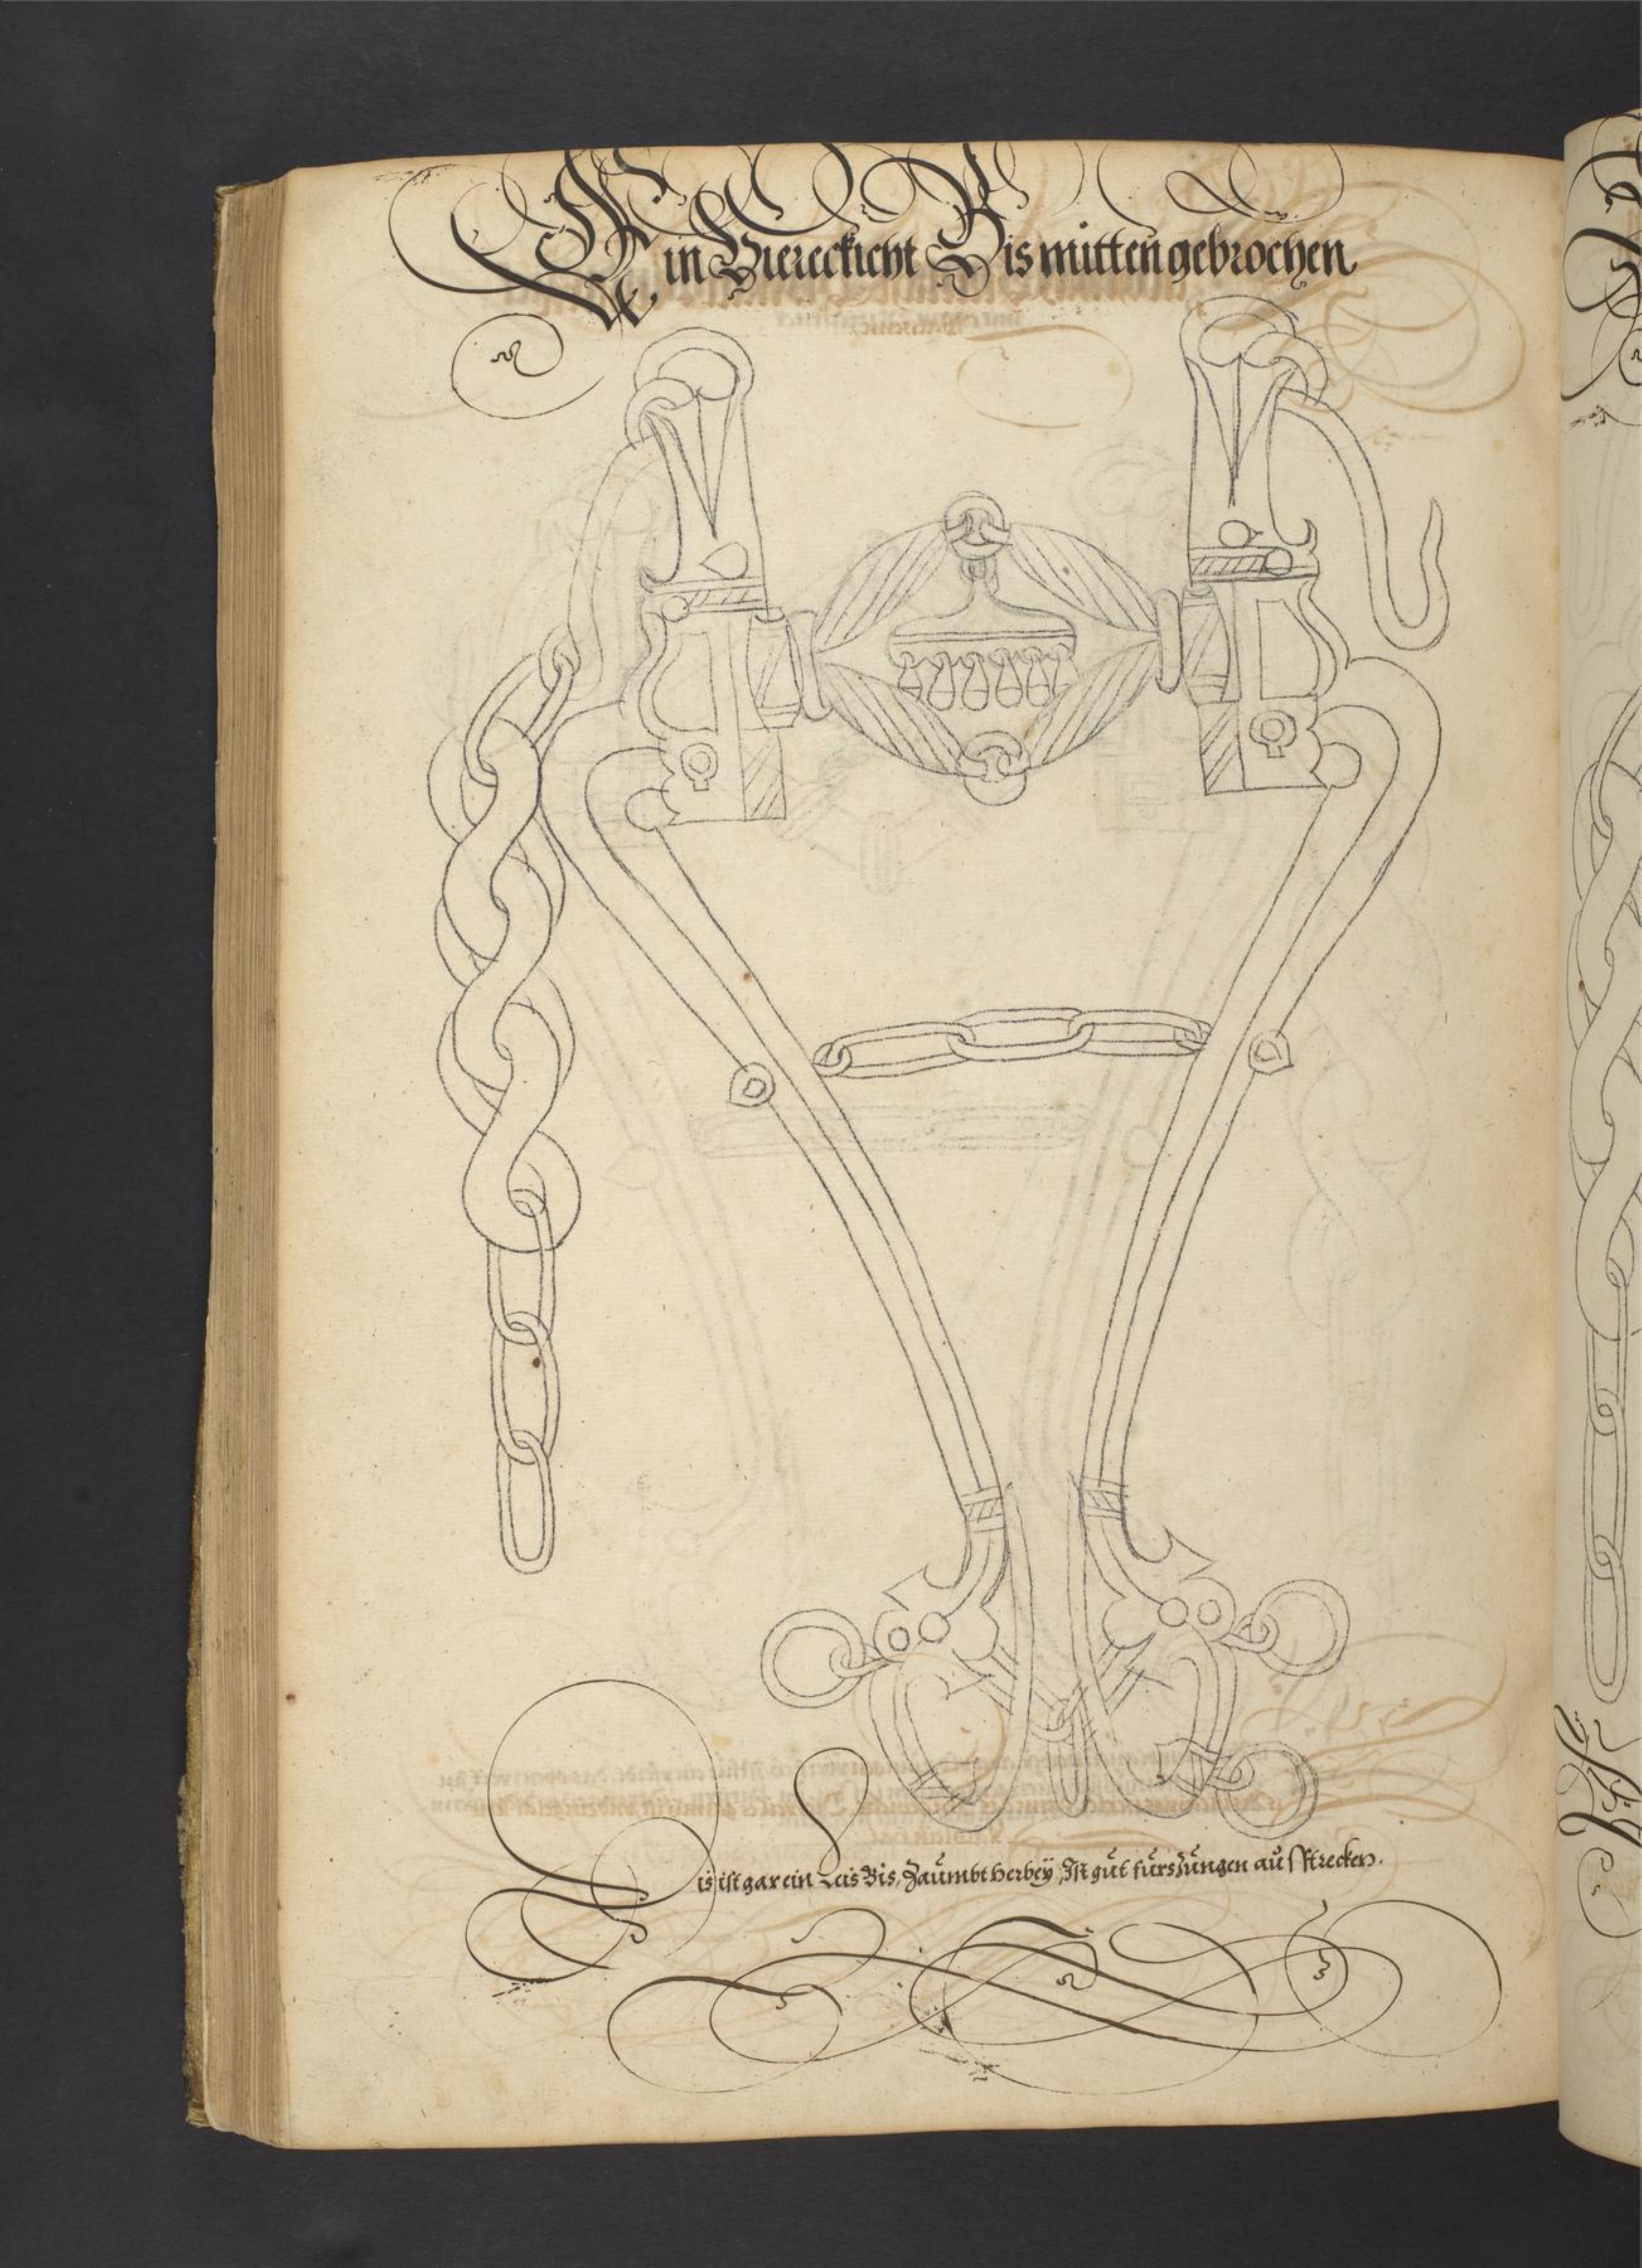 Ein Viereckicht Bis mitten gebrochen
Dis ist gar ein Leis Bis, Zaumbt herbeÿ, Ist gut fürs Zungen aus strecken.